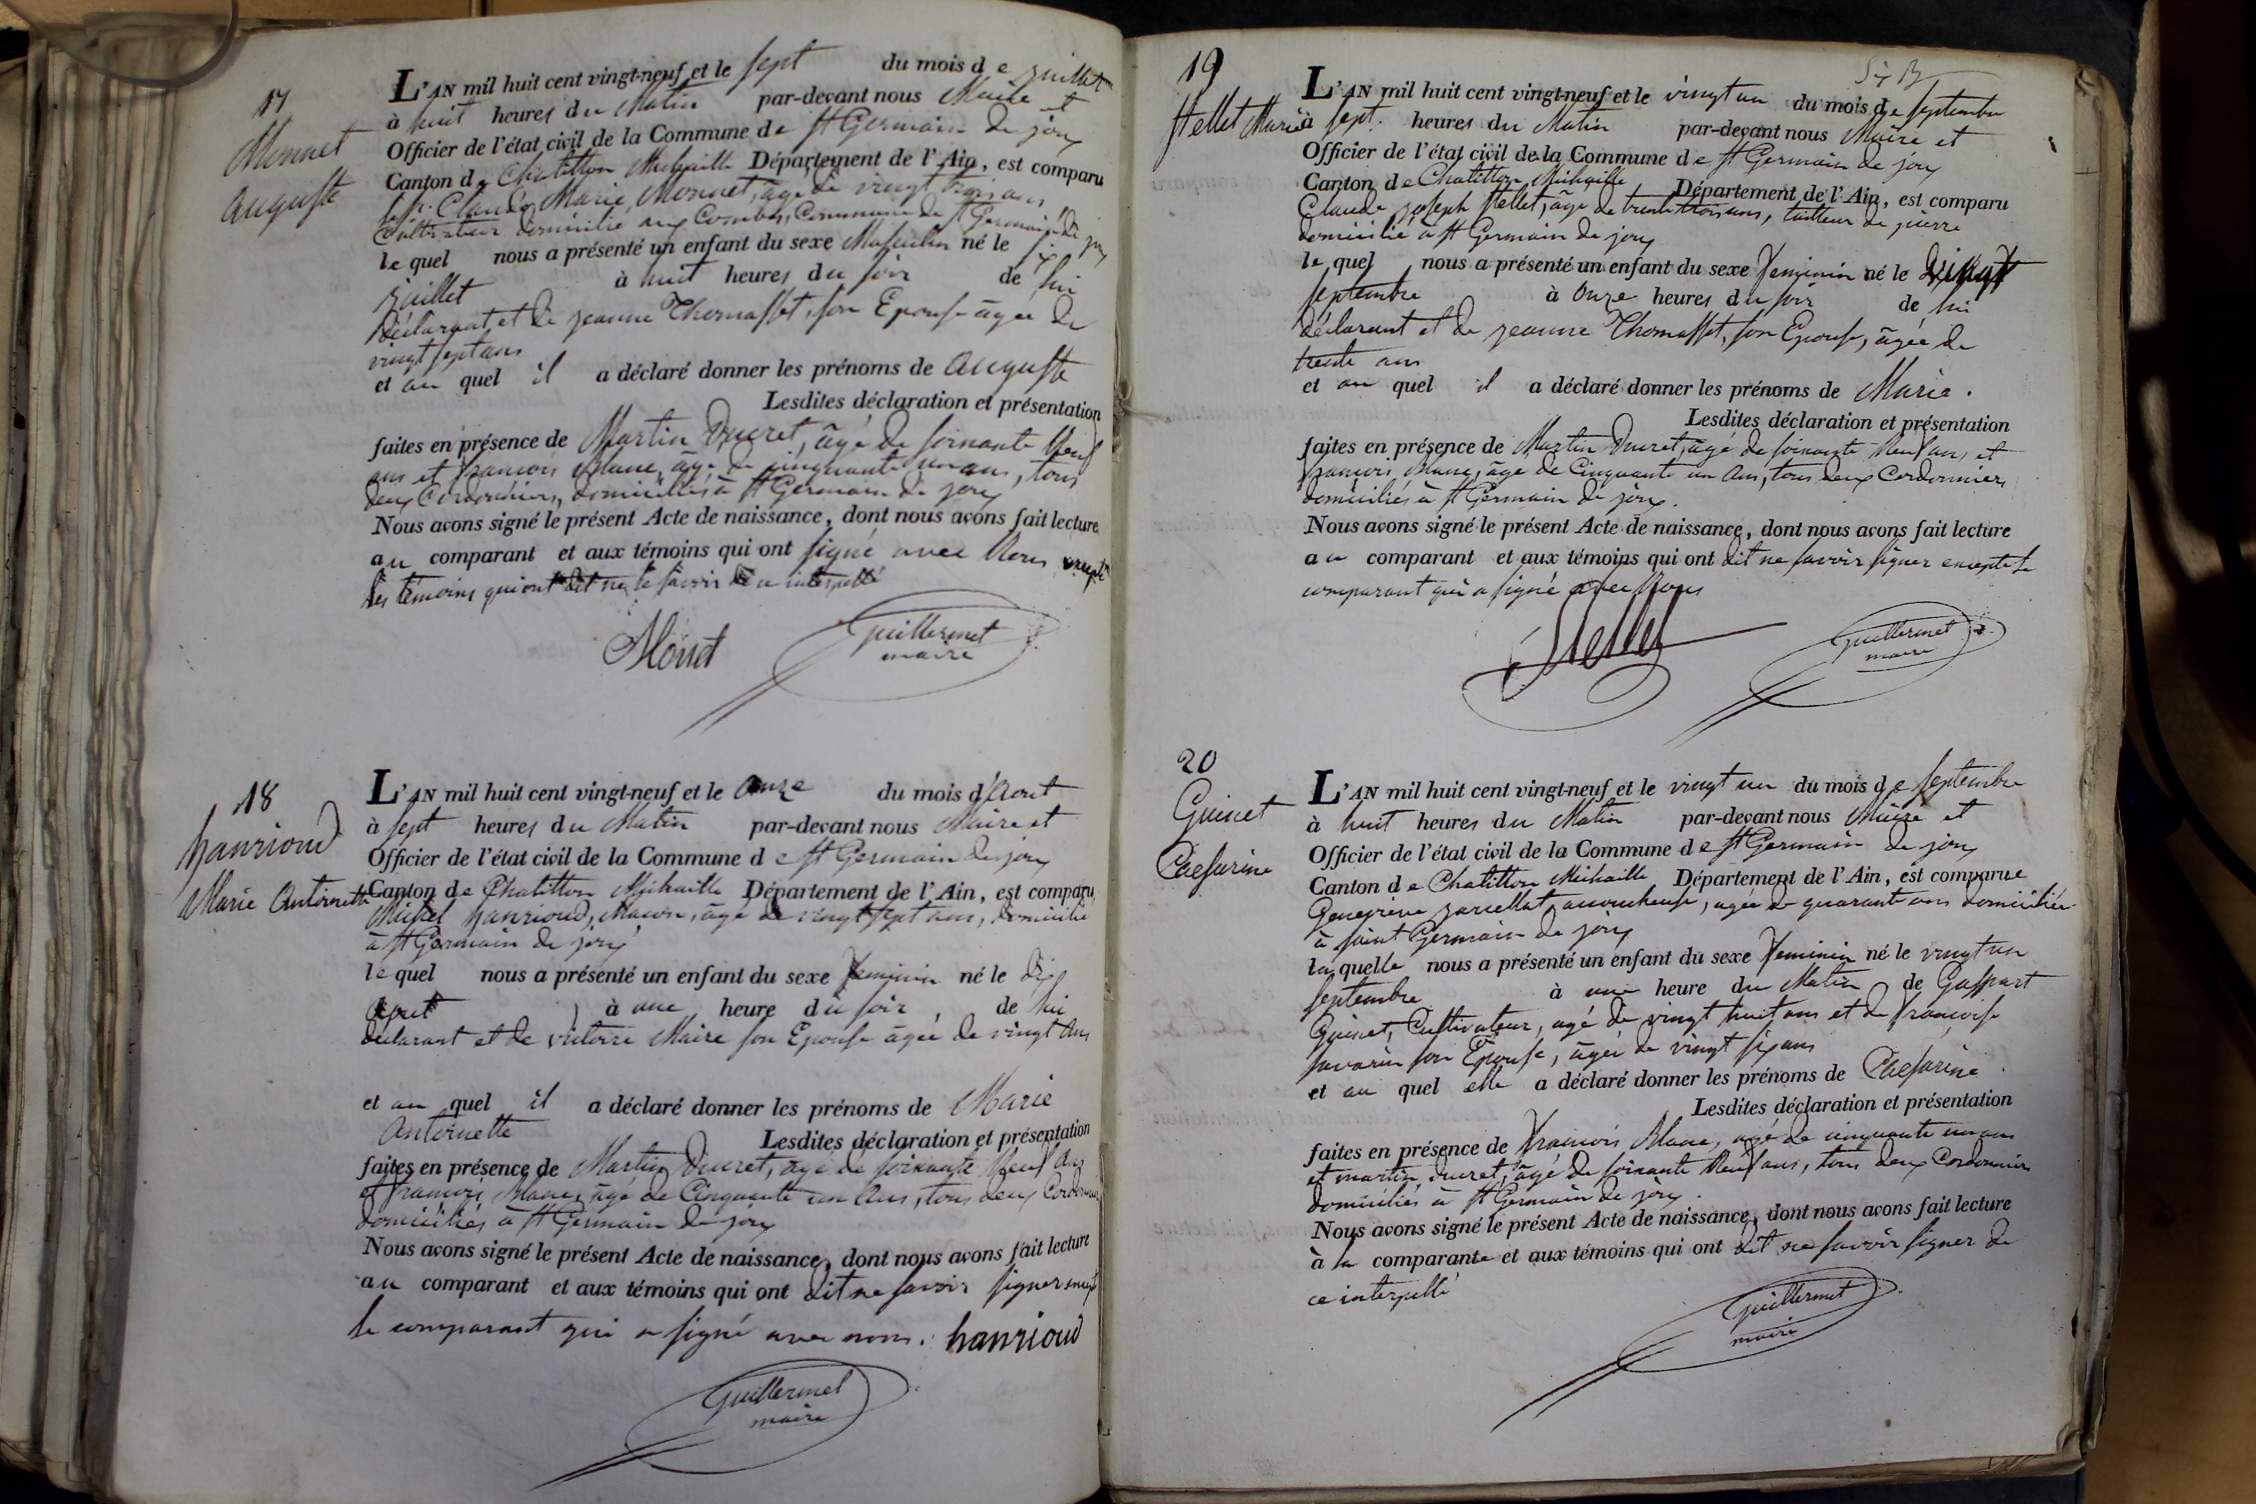 17
Monnet
Auguste
L'AN mil huit cent vingt-neuf et le sept du mois de juillet
à huit heures du Matin par-devant nous Maire et
Officier de l'état civil de la Commune de St Germain de joux
Canton de Chatillon Michaille Département de l'Ain, est comparu
le Sr. Claude Marie Monnet, âgé de vingt trois ans,
Cultivateur domicilié aux Combes, Commune de St Germain de joux
le quel nous a présenté un enfant du sexe Masculin né le six
juillet à huit heures du soir de lui
déclarant et de jeanne Thomasset, son Epouse âgée de
vingt sept ans
et au quel il a déclaré donner les prénoms de Auguste
Lesdites déclaration et présentation
faites en présence de Martin Ducret, âgé de soixante Neuf
ans et françois Blanc, âgé de cinquante un ans, tous
deux Cordonniers, domiciliés à St Germain de joux
Nous avons signé le présent Acte de naissance, dont nous avons fait lecture
au comparant et aux témoins qui ont signé avec Nous excepté
les témoins qui ont dit ne le savoir de ce interpellé
Monet
Guillermet
maire
18
hanrioud
Marie Antoinette
L'AN mil huit cent vingt-neuf et le onze du mois d'Aout
à sept heures du Matin par-devant nous Maire et
Officier de l'état civil de la Commune de St Germain de joux
Canton de Chatillon Michaille Département de l'Ain, est comparu
Michel hanrioud, Maçon, âgé de vingt sept ans, domicilié
à St Germain de joux
le quel nous a présenté un enfant du sexe feminin né le dix
Aout à une heure du soir, de lui
déclarant et de victoire Maire son Epouse âgée de vingt ans
et au quel il a déclaré donner les prénoms de Marie
Antoinette
Lesdites déclaration et présentation
faites en présence de Martin Ducret, âgé de soixante Neuf ans
et françois Blanc, âgé de Cinquante un ans, tous deux Cordonniers
domiciliés à St Germain de joux
Nous avons signé le présent Acte de naissance, dont nous avons fait lecture
au comparant et aux témoins qui ont dit ne savoir signer excepté
le comparant qui a signé avec nous. hanrioud
Guillermet
maire
19
Stellet Marie
L'AN mil huit cent vingt-neuf et le vingt un du mois de septembre
à sept. heures du Matin par-devant nous Maire et
Officier de l'état civil de la Commune de St Germain de joux
Canton de Chatillon Michaille, Département de l'Ain, est comparu
Claude joseph Stellet, âgé de trente trois ans, tailleur de pierre
domicilié à St Germain de joux
le quel nous a présenté un enfant du sexe feminin né le vingt
septembre à onze heures du soir de lui
déclarant et de jeanne Thomasset, son Epouse, âgée de
trente ans
et au quel il a déclaré donner les prénoms de Marie.
Lesdites déclaration et présentation
faites en présence de Martin Ducret, âgé de soixante Neuf ans, et
françois Blanc, âgé de Cinquante un ans, tous deux Cordonniers
domiciliés à St Germain de joux.
Nous avons signé le présent Acte de naissance, dont nous avons fait lecture
au comparant et aux témoins qui ont dit ne savoir signer excepté le
comparant qui a signé avec Nous
Stellet
Guillermet
maire
20
Guinet
Caesarine
L'AN mil huit cent vingt-neuf et le vingt un du mois de septembre
à huit heures du Matin par-devant nous Maire et
Officier de l'état civil de la Commune de St Germain de joux
Canton de Chatillon Michaille Département de l'Ain, est comparue
Geneviève accoucheuse, agée de quarante ans domiciliée
à saint Germain de joux
la quelle nous a présenté un enfant du sexe feminin né le vingt un
septembre à une heure du Matin de Gasspart
Guinet, Cultivateur, agé de vingt huit ans et de françoise
savarin son Epouse, âgée de vingt six ans
et au quel elle a déclaré donner les prénoms de Caesarine.
Lesdites déclaration et présentation
faites en présence de françois Blanc, agé de cinquante un ans
et martin ducret, âgé de soixante Neuf ans, tous deux Cordonniers
domiciliés à St Germain de joux.
Nous avons signé le présent Acte de naissance, dont nous avons fait lecture
à la comparante et aux témoins qui ont dit ne savoir signer de
ce interpellé
Guillermet
maire